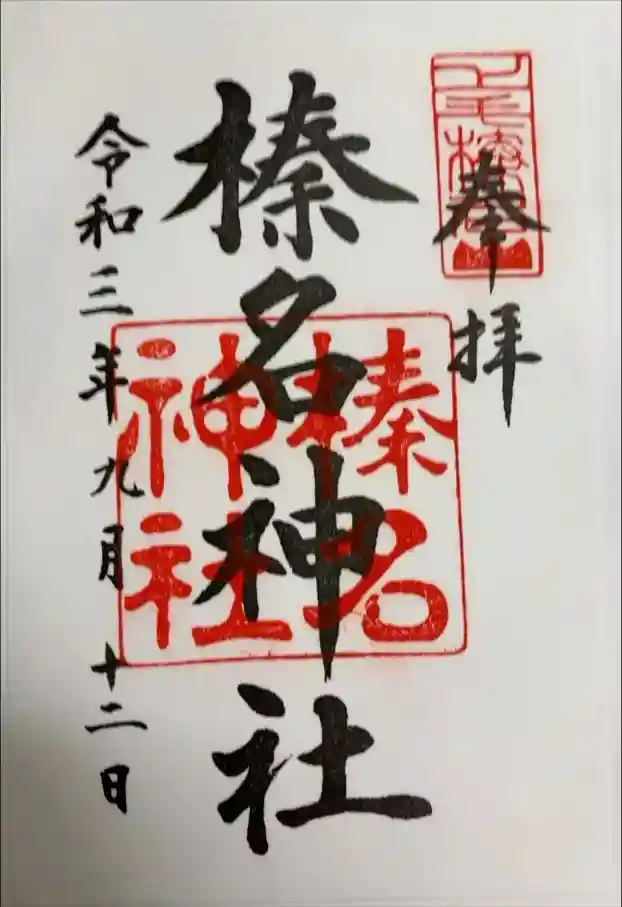 奉拝
榛名神社
榛名
神社
令和三年九月十二日